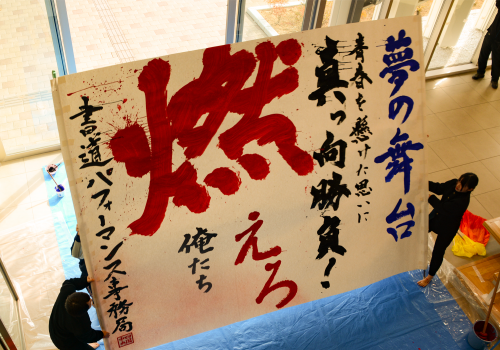 夢の舞台
青春を懸けた思いに
真っ向勝負!
燃えろ
俺たち
書道パフォーマンス事務局